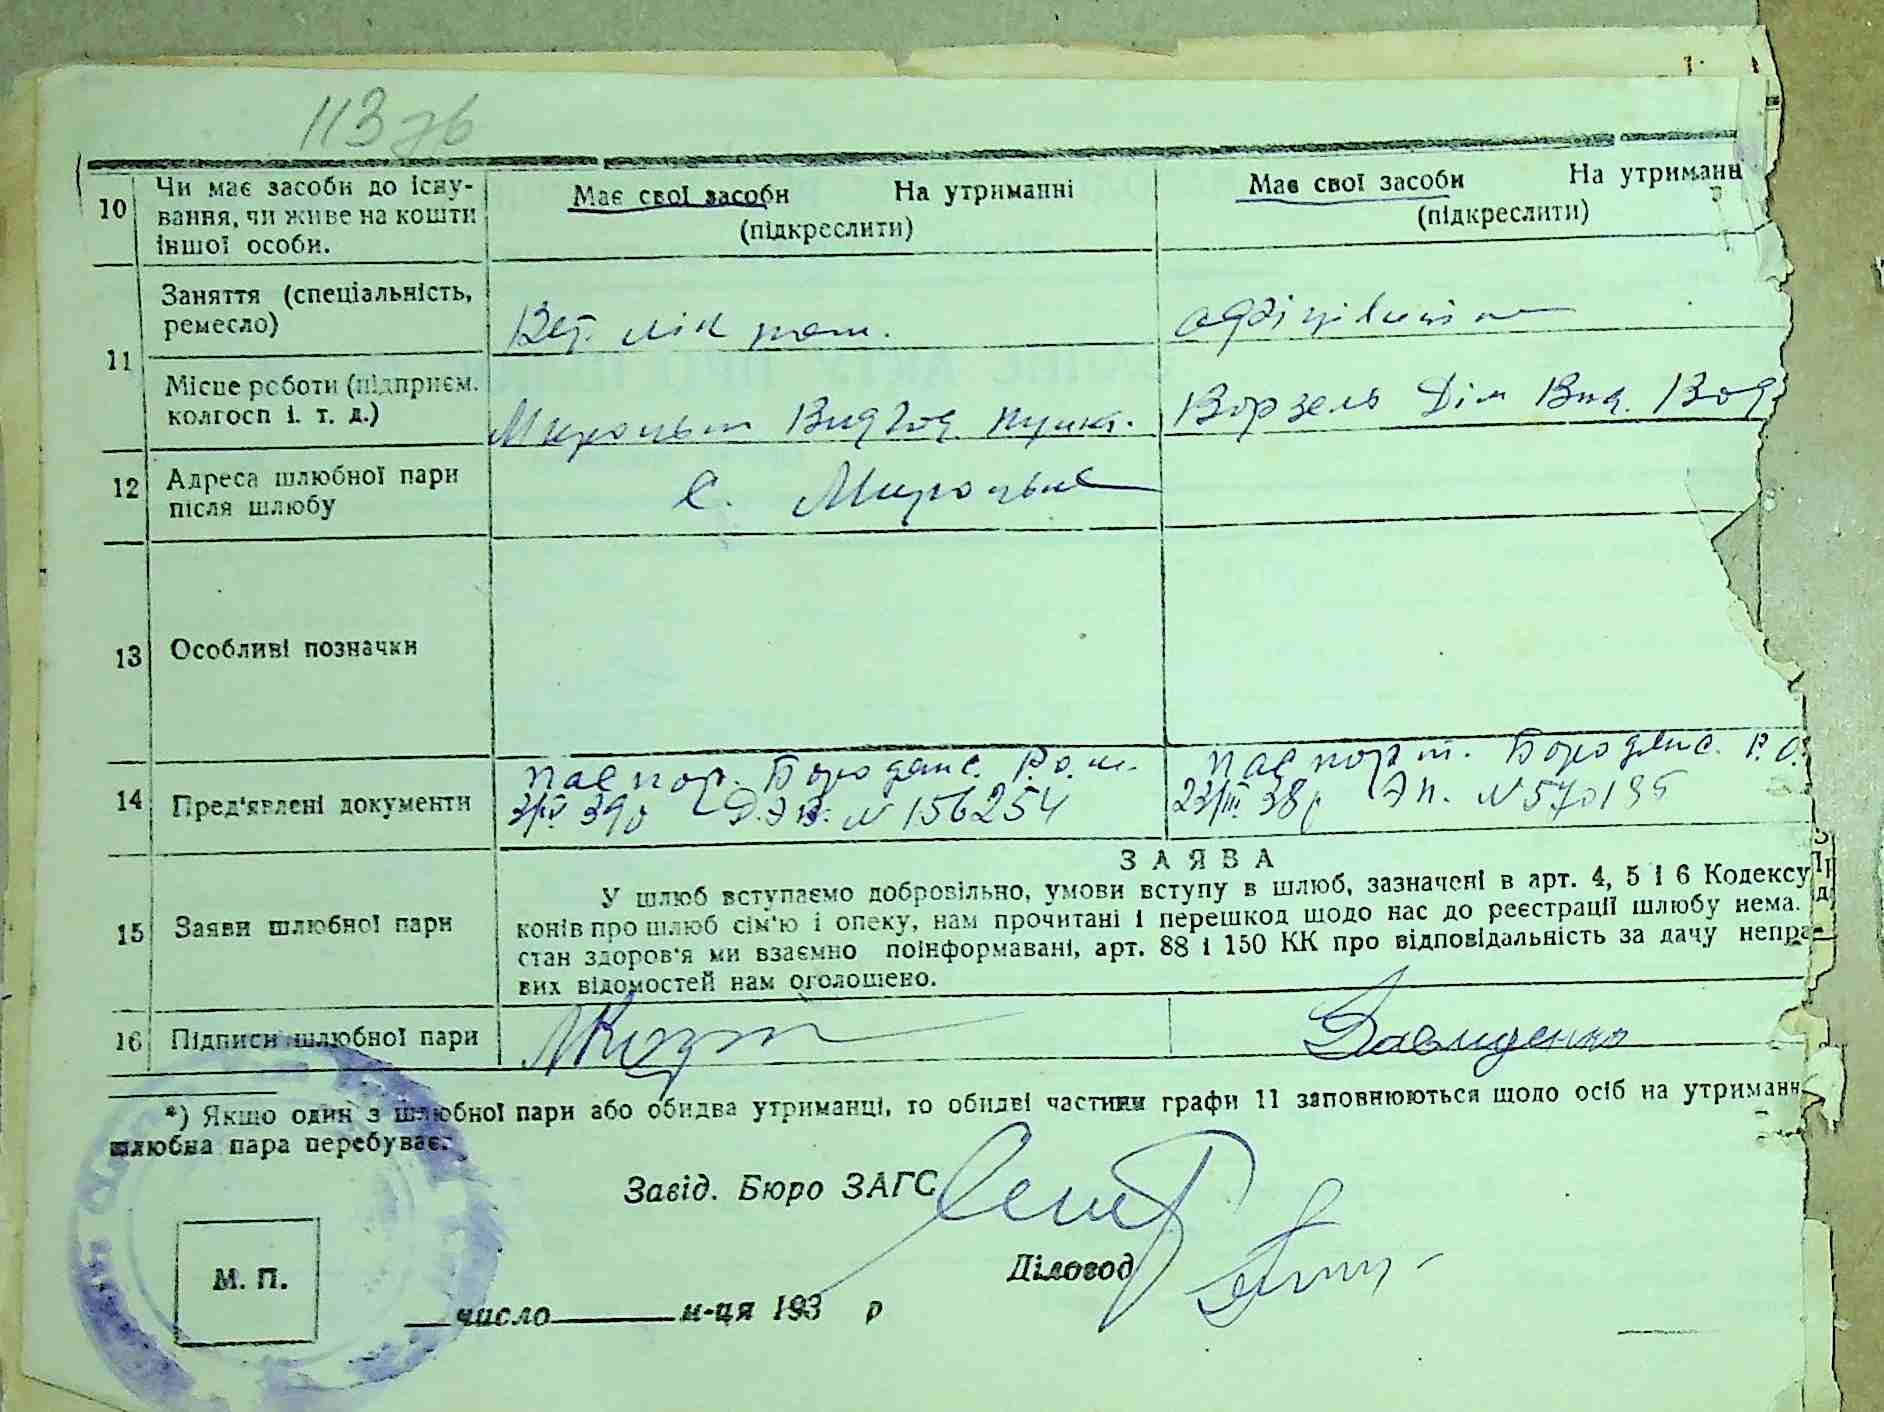 113 зв
10 Чи має засоби до існу-
вання, чи живе на кошти
іншої особи.
Має свої засоби На утриманні
(підкреслити)
Має свої засоби На утриманн
(підкреслити)
11 Заняття (спеціальність,
ремесло)
Вет. лік пом.
Місце роботи (підприєм.
колгосп і. т. д.)
пункт. Ворзель Дім
12 Адреса шлюбної пари
після шлюбу
с.
13 Особливі позначки
14 Пред'явлені документи
паспор. Бородянс. Р.о.м.
39р N 156254
паспорт. Бородянс. Р.О.
23/III 38р ЭП. N
15 Заяви шлюбної пари
ЗАЯВА
У шлюб вступаємо добровільно, умови вступу в шлюб, зазначені в арт. 4, 5 і 6 Кодексу
конів про шлюб сім'ю і опеку, нам прочитані і перешкод щодо нас до реєстрації шлюбу нема.
стан здоров'я ми взаємно поінформавані, арт. 88 і 150 КК про відповідальність за дачу непра-
вих відомостей нам оголошено.
16 Підписи шлюбної пари
Давиденко
*) Якщо один з шлюбної пари або обидва утриманці, то обидві частини графи 11 заповнюються щодо осіб на утриманн
шлюбна пара перебуває.
Завід. Бюро ЗАГС
Діловод
М. П.
число м-ця 193 р